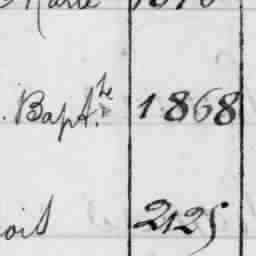 Marie 1870
. Bapt.te 1868
ois 2125